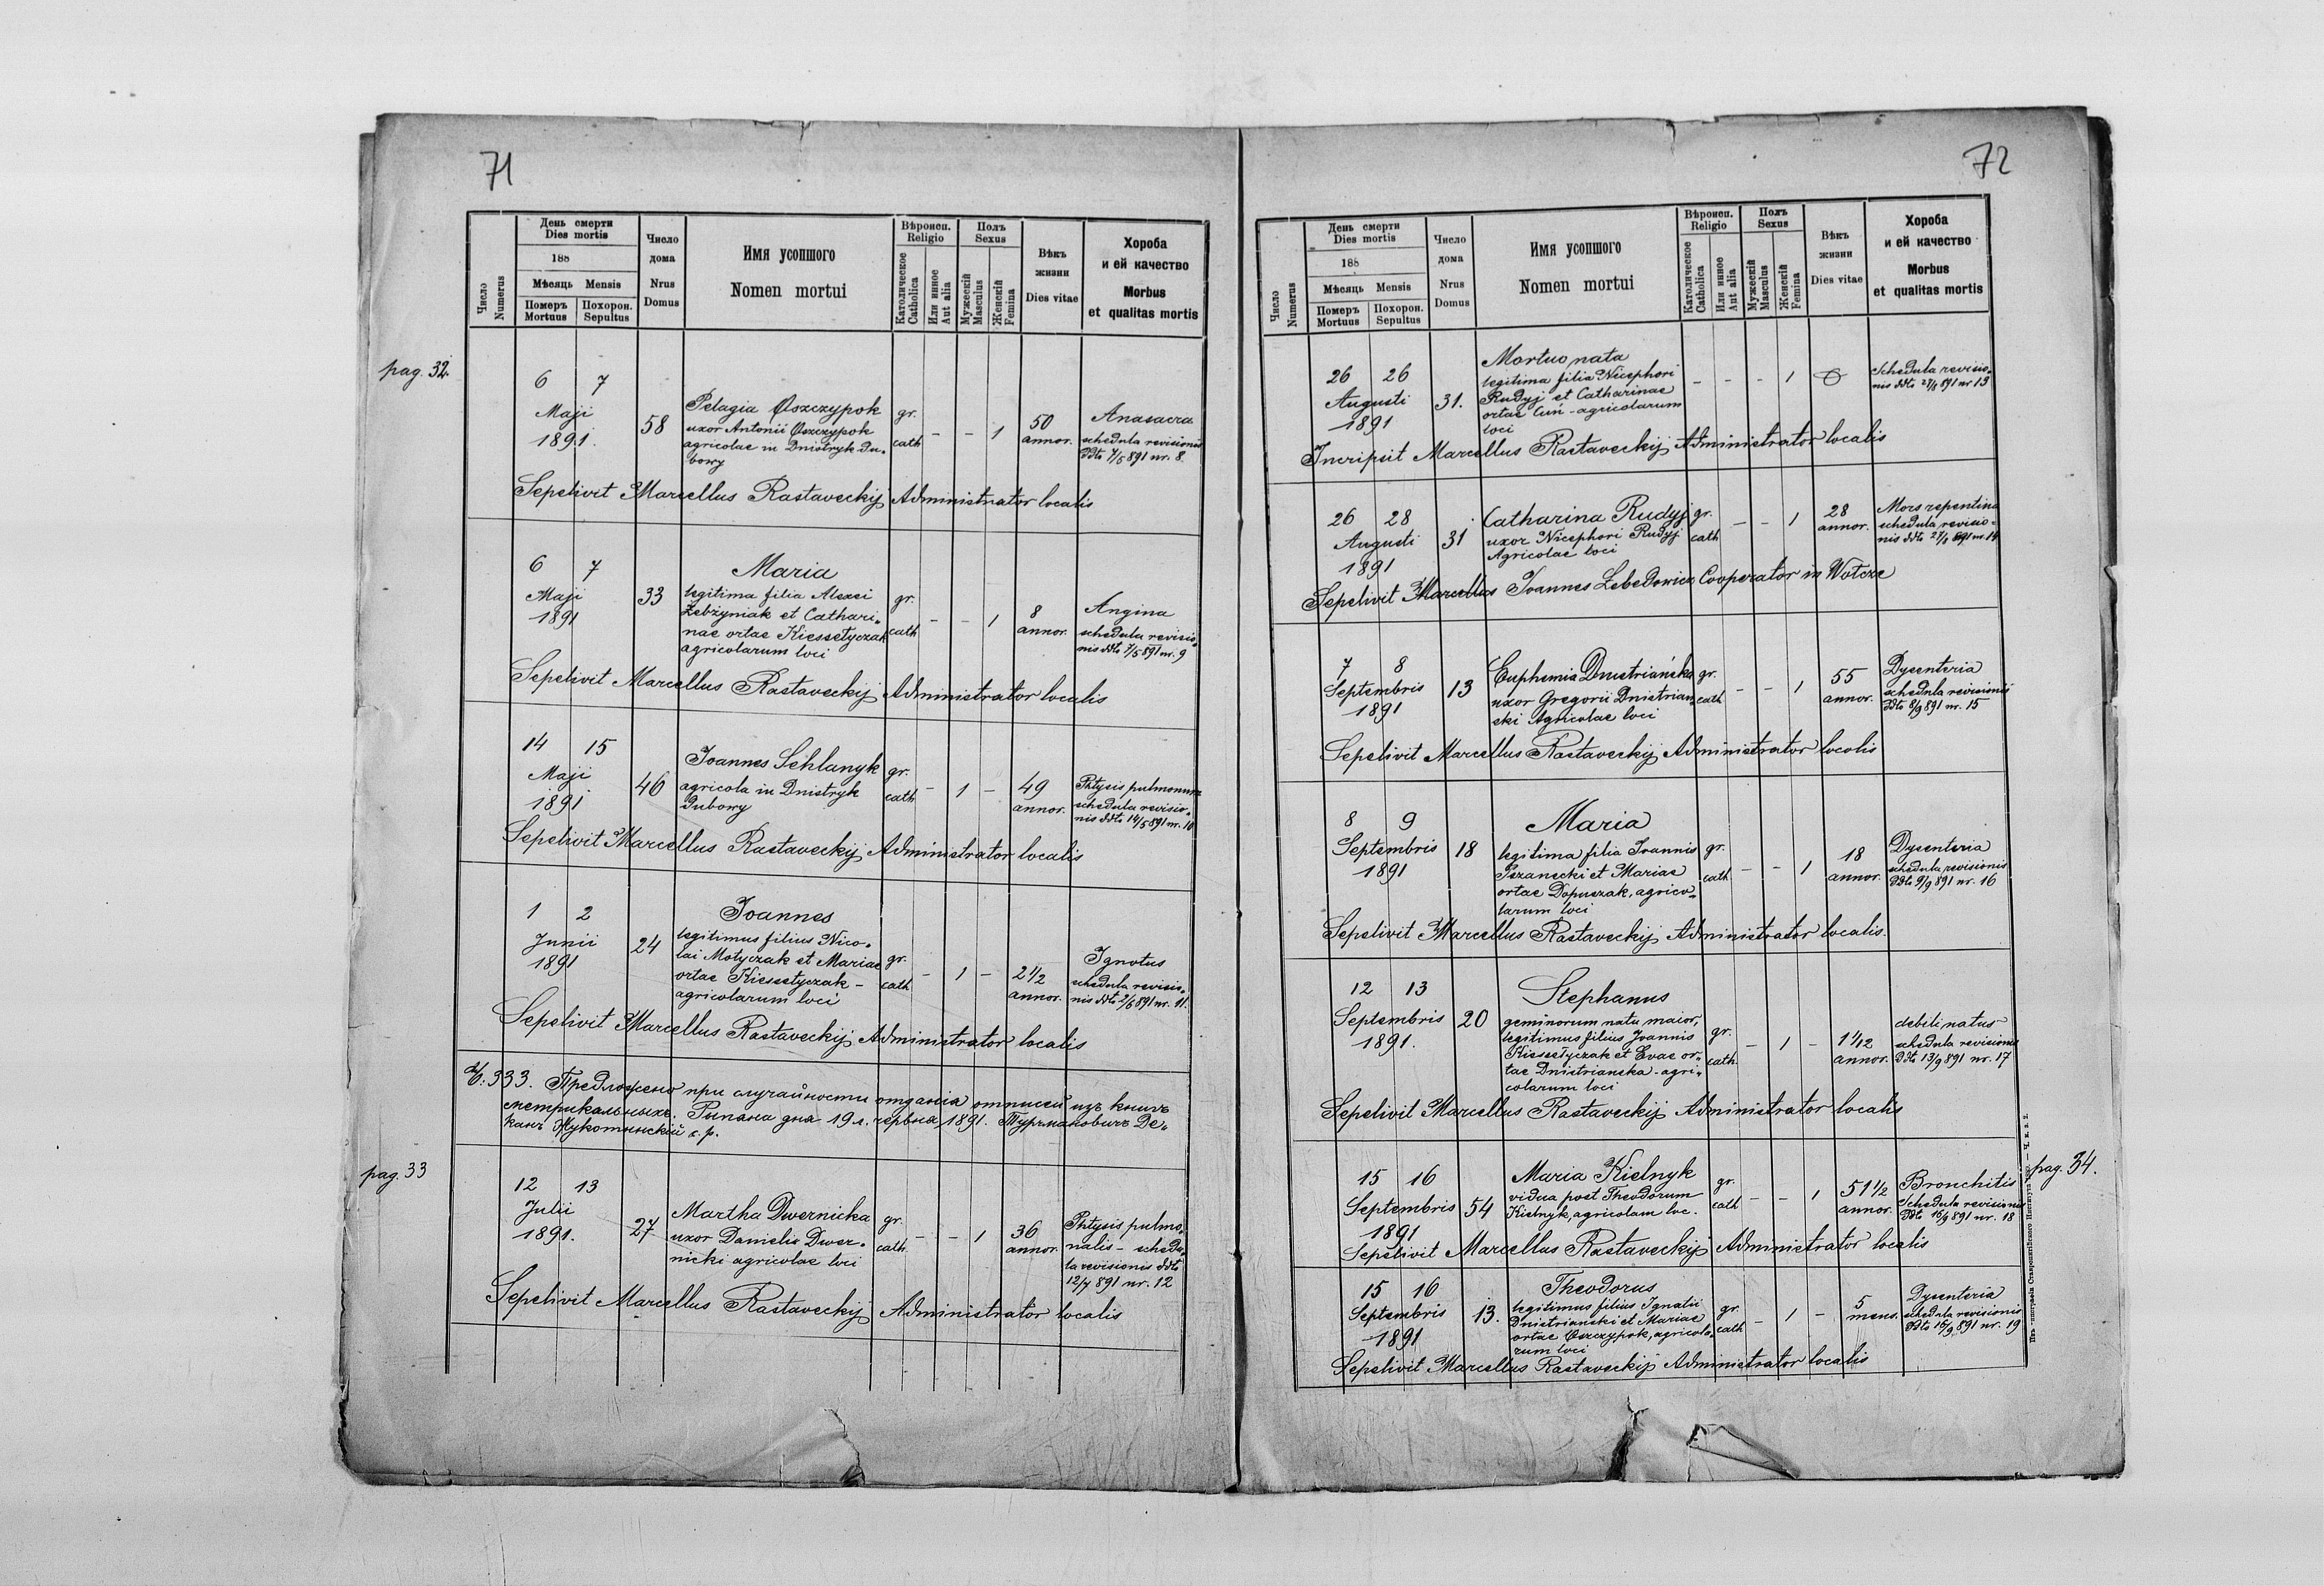 71
День смерти
Dies mortis
188
Мѣсяць Mensis
Померъ Похорон.
Mortuus Sepultus
Число
Numerus
Число
дома
Nrus
Domus
Имя усопшого
Nomen mortui
Вѣроисп.
Religio
Католическое
Catholica
Или инное
Aut alia
Полъ
Sexus
Мужескій
Masculus
Женскій
Femina
Вѣкъ
жизни
Dies vitae
Хороба
и ей качество
Morbus
et qualitas mortis
pag. 32.
6 7
Maji
1891.
58
Pelagia Oszczypok
uxor Antonii Oszczypok
agricolae in Dnistryk Du-
bowy
gr.
cath
- - 1
50
annor.
Anasacra
schedula revisionis
ddto 7/5 891 nr. 8.
Sepelivit Marcellus Rastaveckij Administrator localis
6 7
Maji
1891
33
Maria
legitima filia Alexei
Żebżyniak et Cathari-
nae ortae Kiessełyczak
agricolarum loci
gr.
cath
- - 1
8
annor.
Angina
schedula revisio-
nis ddto 7/5 891 nr. 9
Sepelivit Marcellus Rastaveckij Administrator localis
14 15
Maji
1891
46
Joannes Schlanyk
agricola in Dnistryk
Dubowy
gr.
cath
- 1 -
49
annor.
Phtysis pulmonum
schedula revisio-
nis ddto 14/5 891 nr. 10
Sepelivit Marcellus Rastaveckij Administrator localis
1 2
Junii
1891
24
Joannes
legitimus filius Nico-
lai Motyczak et Mariae
ortae Kiessełyczak -
agricolarum loci
gr.
cath
- 1 -
2 1/2
annor.
Ignotus
schedula revisio-
nis ddto 2/6 891 nr. 11.
Sepelivit Marcellus Rastaveckij Administrator localis
Ч: 333. Предложено при случайности отданія отписей изъ книгъ
метрикальныхъ. Рипяна дня 19 л. червня 1891. Турманович Де-
канъ Жукотинскій с. р.
pag. 33
12 13
Julii
1891.
27
Martha Dwernicka
uxor Danielis Dwer-
nicki agricolae loci
gr.
cath
- - 1
36
annor.
Phtysis pulmo-
nalis - schedu-
la revisionis ddto
12/7 891 nr. 12
Sepelivit Marcellus Rastaveckij Administrator localis
72
День смерти
Dies mortis
188
Мѣсяць Mensis
Померъ Похорон.
Mortuus Sepultus
Число
Numerus
Число
дома
Nrus
Domus
Имя усопшого
Nomen mortui
Вѣроисп.
Religio
Католическое
Catholica
Или инное
Aut alia
Полъ
Sexus
Мужескій
Masculus
Женскій
Femina
Вѣкъ
жизни
Dies vitae
Хороба
и ей качество
Morbus
et qualitas mortis
26 26
Augusti
1891
31.
Mortuo nata
legitima filia Nicephori
Rudyj et Catharinae
ortae Cuń - agricolarum
loci
- - - 1
0
Schedula revisio-
nis ddto 27/8 891 nr 13
Incripsit Marcellus Rastaveckij Administrator localis
26 28
Augusti
1891
31
Catharina Rudyj
uxor Nicephori Rudyj
Agricolae loci
gr.
cath
- - 1
28
annor.
Mors repentina
schedula revisio-
nis ddto 27/8 891 nr. 14
Sepelivit Marcellus Joannes Lebedowicz Cooperator in Wołcze
7 8
Septembris
1891
13
Euphemia Dnistriańska
uxor Gregorii Dnistrian-
ski Agricolae loci
gr.
cath
- - 1
55
annor.
Dysenteria
schedula revisionis
ddto 8/9 891 nr. 15
Sepelivit Marcellus Rastaveckij Administrator localis
8 9
Septembris
1891
18
Maria
legitima filia Joannis
Pszanecki et Mariae
ortae Dopuszak, agrico-
larum loci
gr.
cath
- - 1
18
annor.
Dysenteria
schedula revisionis
ddto 9/9 891 nr. 16
Sepelivit Marcellus Rastaveckij Administrator localis.
12 13
Septembris
1891.
20
Stephanus
geminorum natu maior,
legitimus filius Joannis
Kiessełyczak et Evae or-
tae Dnistrianska - agri-
colarum loci
gr.
cath.
- 1 -
1 1/12
annor.
debili natus
schedula revisionis
ddto 13/9 891 nr. 17
Sepelivit Marcellus Rastaveckij Administrator localis
15 16
Septembris
1891
54
Maria Kielnyk
vidua post Theodorum
Kielnyk, agricolam loc.
gr.
cath
- - 1
51 1/2
annor.
Bronchitis
Schedula revisionis
ddto 16/9 891 nr. 18
pag. 34.
Sepelivit Marcellus Rastaveckij Administrator localis
15 16
Septembris
1891
13.
Theodorus
legitimus filius Ignatii
Dnistrianski et Mariae
ortae Oszczypok, agricola-
rum loci
gr.
cath
- 1 -
5
mens.
Dysenteria
schedula revisionis
ddto 16/9 891 nr. 19
Sepelivit Marcellus Rastaveckij Administrator localis